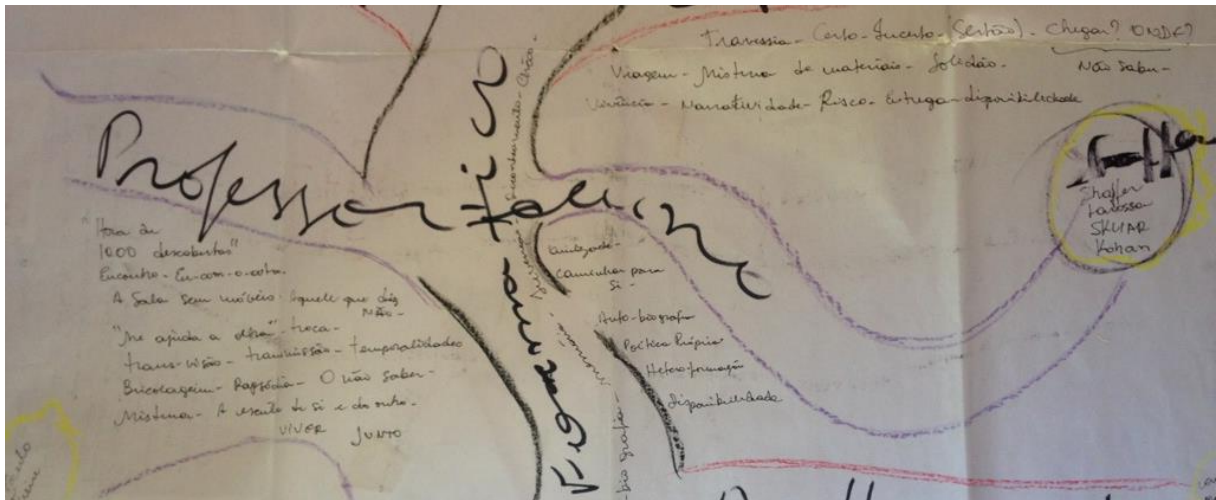 Travessia - Certo - Incerto - (Sertão) - Chegar? ONDE?
Viagem - Mistura de materiais - Solidão -
Não saber -
Narratividade - Risco - Entrega - disponibilidade
Professor
Shaffer
Larossa
SKLIAR
Kohan
"Hora de
1000 descobertas"
Encontro - En-com-o-outro.
A Sala sem móveis - aquele que diz
NÃO -
"Me ajuda a olhar" - troca -
trans-visão - transmissão - temporalidades
Bricolagem - Rapsódia - O não saber -
Mistura - A escuta de si e do outro -
VIVER JUNTO
amizade -
caminhar para
si -
Auto-biografia
Política Própria
Hetero formação
disponibilidade
biografia - memória
Chão -